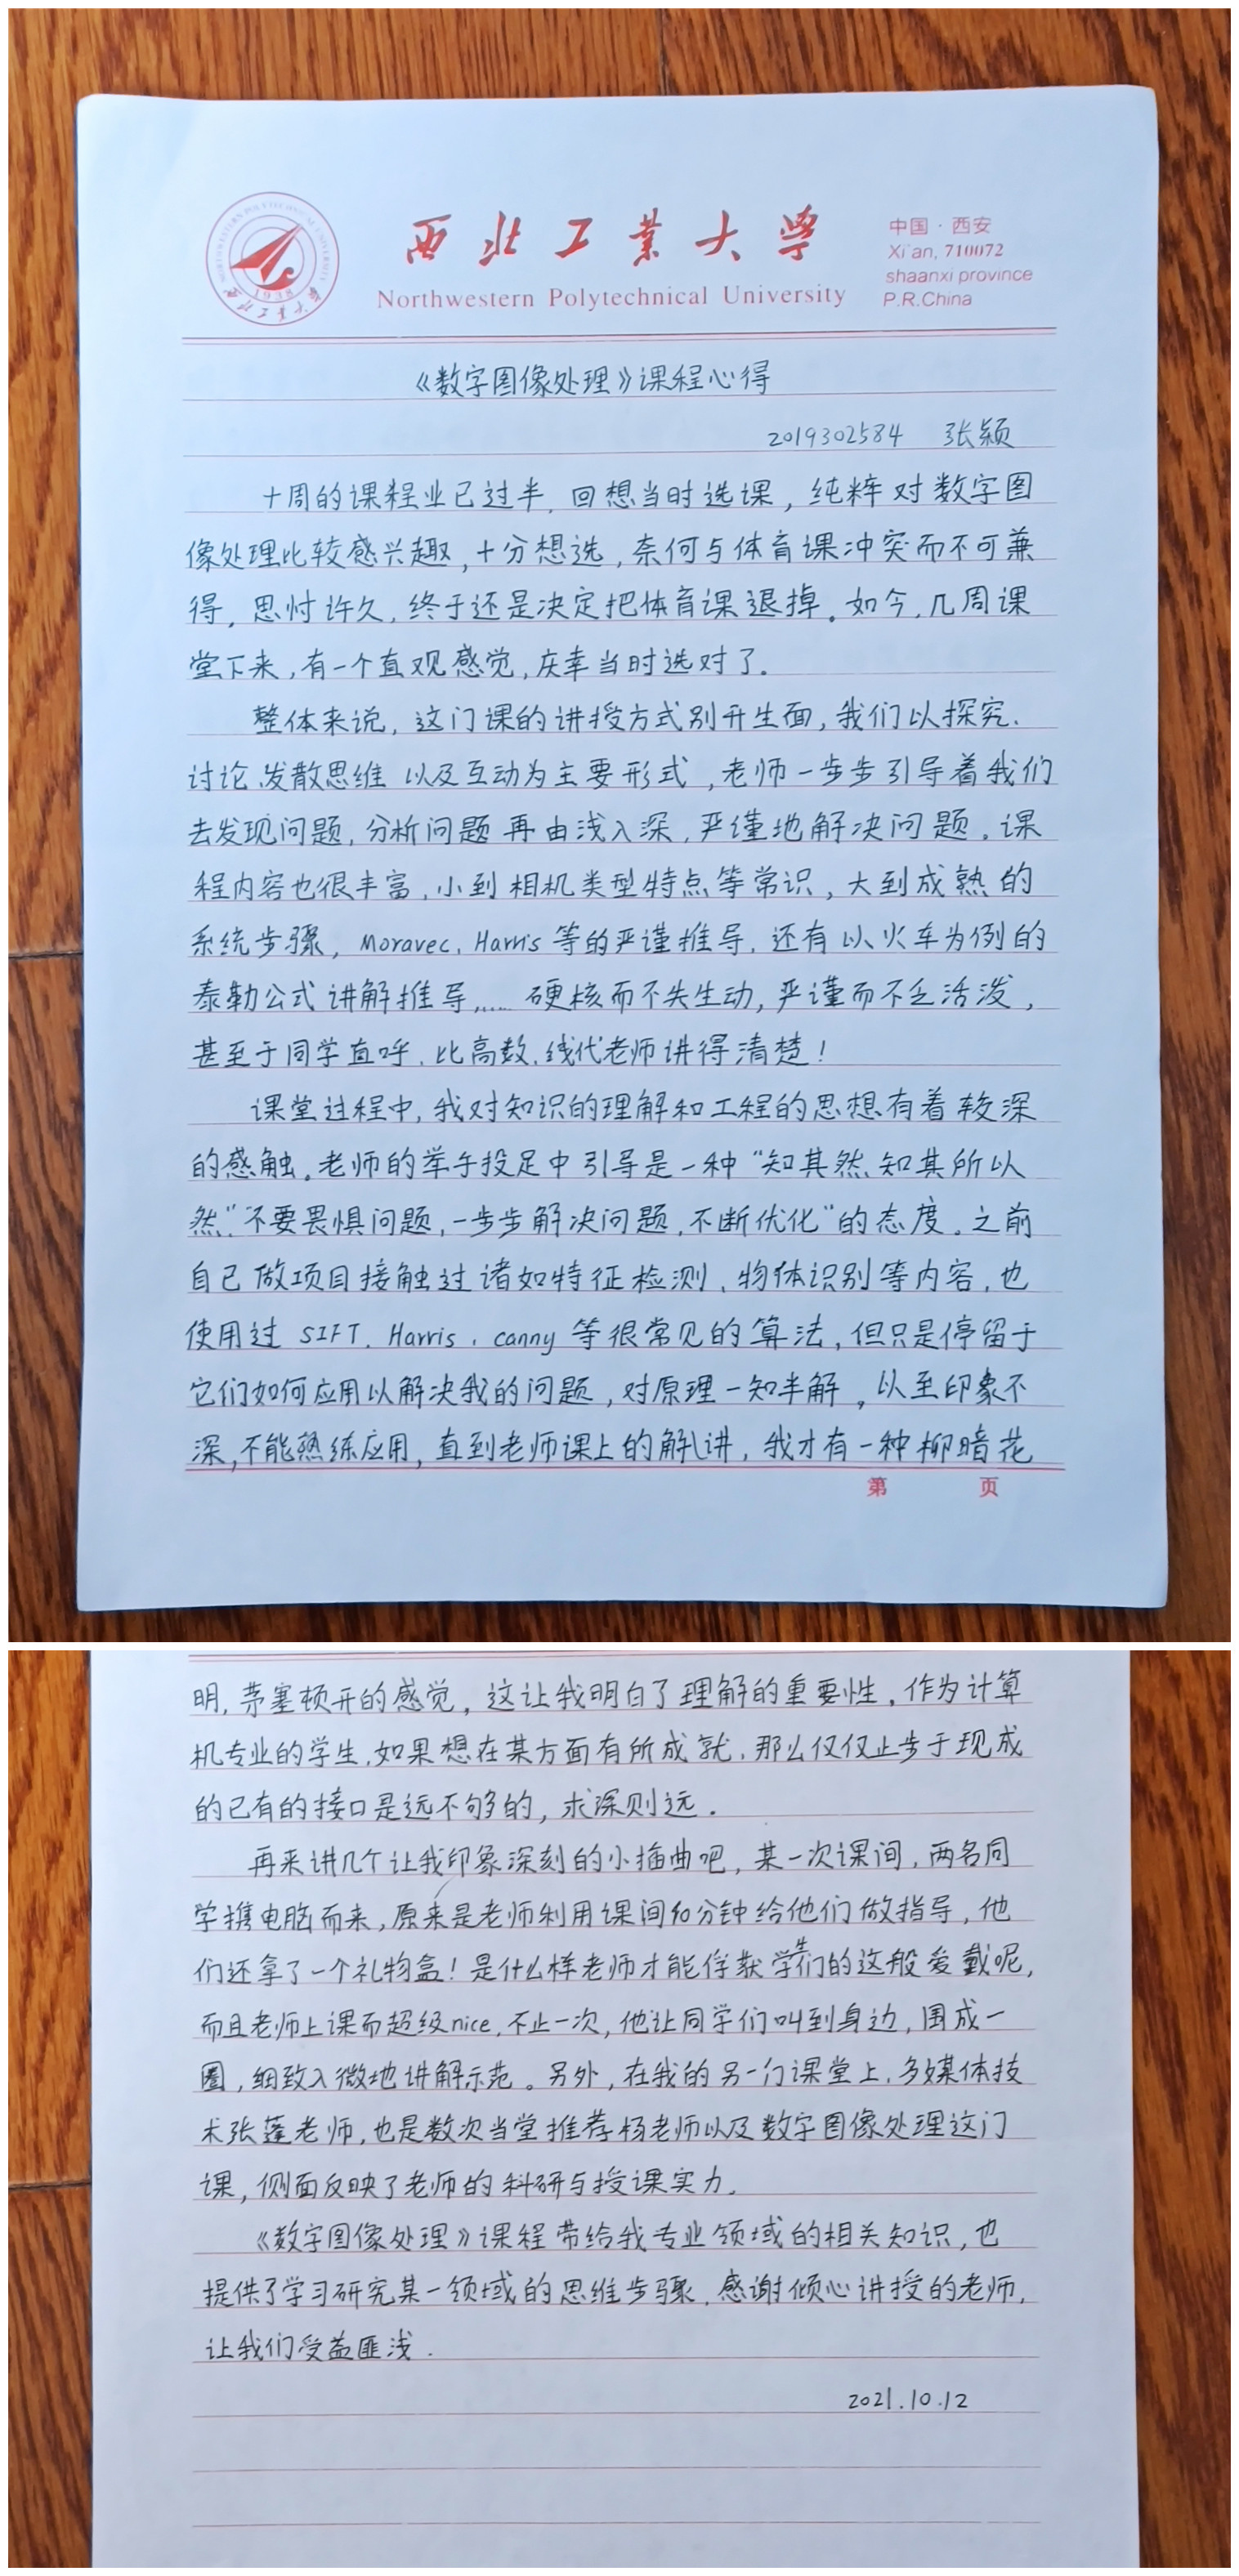 西北工业大学
Northwestern Polytechnical University
中国·西安
Xi'an, 710072
shaanxi province
P.R.China
NORTHWESTERN POLYTECHNICAL UNIVERSITY
1938
西北工业大学
《数字图像处理》课程心得
2019302584 张颖
十周的课程业已过半,回想当时选课,纯粹对数字图
像处理比较感兴趣,十分想选,奈何与体育课冲突而不可兼
得,思忖许久,终于还是决定把体育课退掉。如今,几周课
堂下来,有一个直观感觉,庆幸当时选对了。
整体来说,这门课的讲授方式别开生面,我们以探究、
讨论、发散思维以及互动为主要形式,老师一步步引导着我们
去发现问题,分析问题再由浅入深,严谨地解决问题。课
程内容也很丰富,小到相机类型特点等常识,大到成熟的
系统步骤,Moravec、Harris等的严谨推导,还有以火车为例的
泰勒公式讲解推导,……硬核而不失生动,严谨而不乏活泼,
甚至于同学直呼,比高数、线代老师讲得清楚!
课堂过程中,我对知识的理解和工程的思想有着较深
的感触。老师的举手投足中引导是一种“知其然、知其所以
然”“不要畏惧问题,一步步解决问题,不断优化”的态度。之前
自己做项目接触过诸如特征检测、物体识别等内容,也
使用过SIFT、Harris、canny等很常见的算法,但只是停留于
它们如何应用以解决我的问题,对原理一知半解,以至印象不
深,不能熟练应用,直到老师课上的解讲,我才有一种柳暗花
第 页
明,茅塞顿开的感觉,这让我明白了理解的重要性,作为计算
机专业的学生,如果想在某方面有所成就,那么仅仅止步于现成
的已有的接口是远不够的,求深则远.
再来讲几个让我印象深刻的小插曲吧,某一次课间,两名同
学携电脑而来,原来是老师利用课间10分钟给他们做指导,他
们还拿了一个礼物盒!是什么样老师才能俘获学生们的这般爱戴呢,
而且老师上课而超级nice,不止一次,他让同学们叫到身边,围成一
圈,细致入微地讲解示范。另外,在我的另一门课堂上,多媒体技
术张莲老师,也是数次当堂推荐杨老师以及数字图像处理这门
课,侧面反映了老师的科研与授课实力。
《数字图像处理》课程带给我专业领域的相关知识,也
提供了学习研究某一领域的思维步骤,感谢倾心讲授的老师,
让我们受益匪浅.
2021.10.12